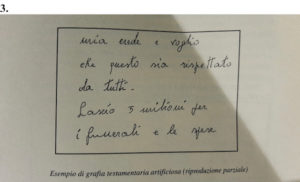 3.
mia erede e voglio
che questo sia rispettato
da tutti.
Lascio 5 milioni per
i funerali e le spese
Esempio di grafia testamentaria artificiosa (riproduzione parziale)